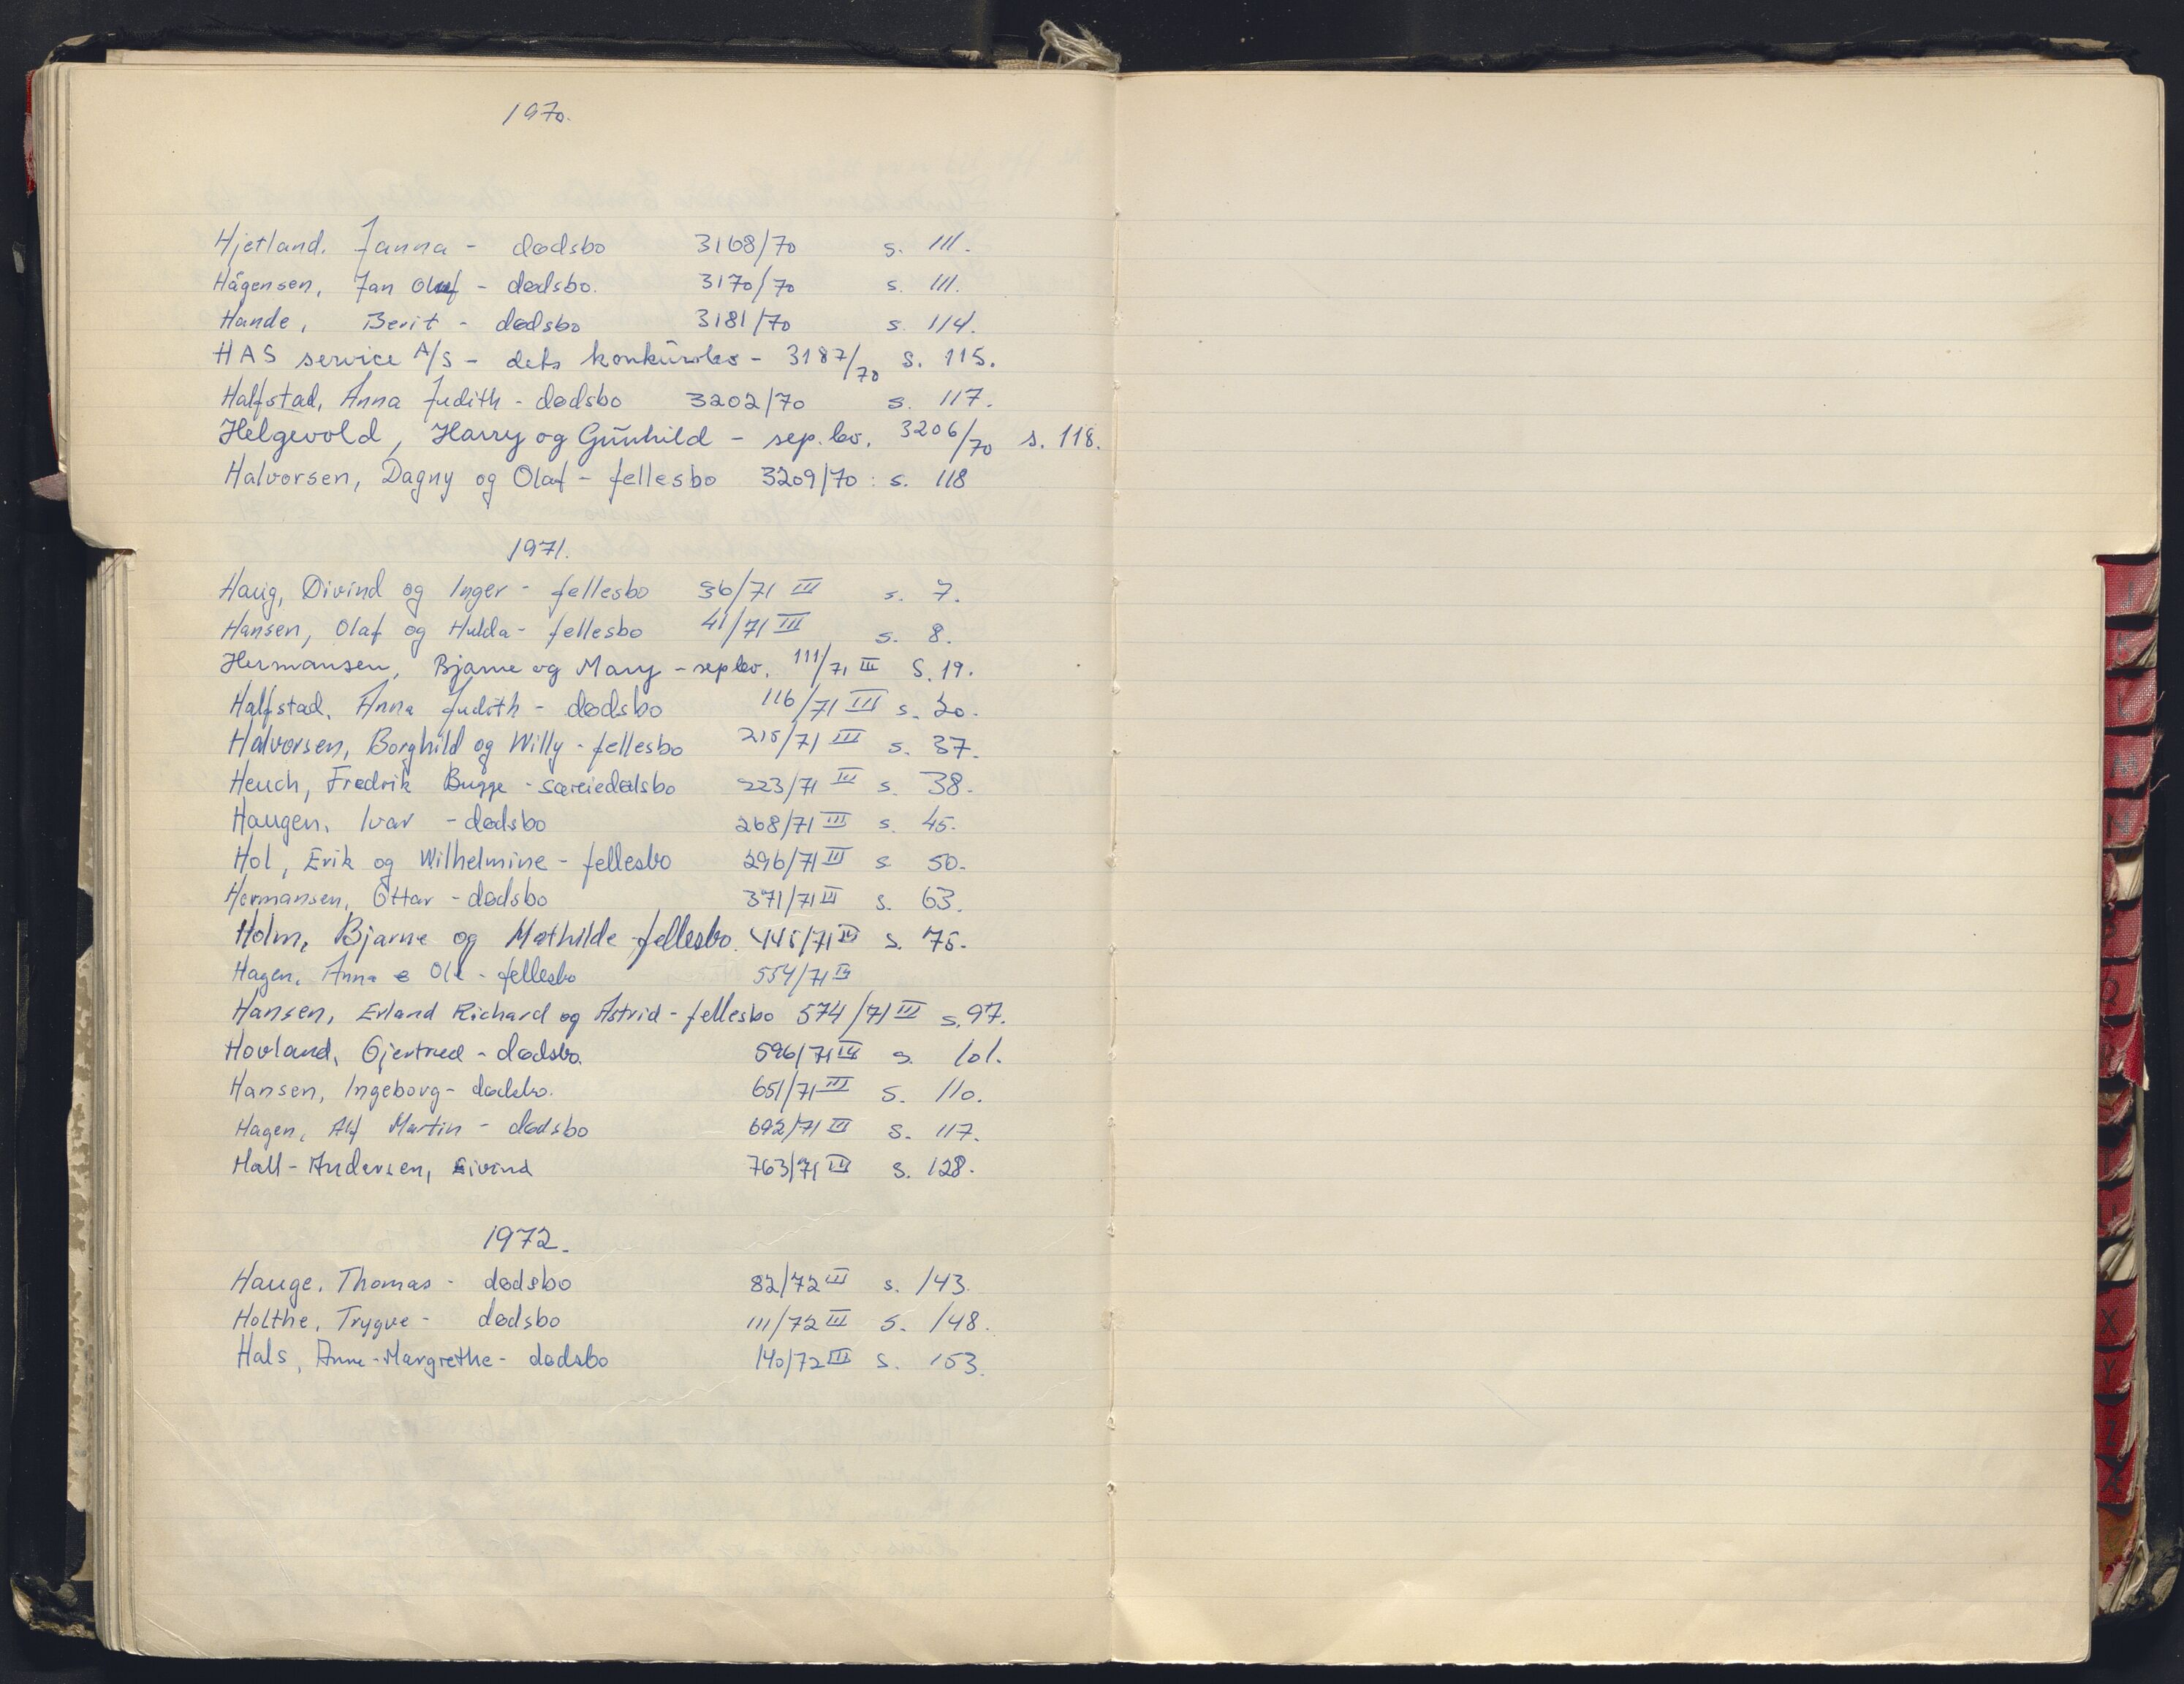 1970.
Hjetland, Janna - dødsbo 3168/70 s. 111.
Hågensen, Jan Oluf - dødsbo. 3170/70 s. 111.
Hande, Berit - dødsbo 3181/70 s. 114.
HAS service A/S - dets konkursbo - 3187/70 s. 115.
Halfstad, Anna Judith - dødsbo 3202/70 s. 117.
Helgevold, Harry og Gunhild - sep.bo. 3206/70 s. 118.
Halvorsen, Dagny og Olaf - fellesbo 3209/70 : s. 118
1971.
Haug, Øivind og Inger - fellesbo 36/71 III s. 7.
Hansen, Olaf og Hulda - fellesbo 41/71 III s. 8.
Hermansen, Bjarne og Mary - sepbo. 111/71 III S. 19.
Halfstad, Anna Judith - dødsbo 116/71 III s. 20.
Halvorsen, Borghild og Willy - fellesbo 215/71 III s. 37.
Heuch, Fredrik Bugge - særeiedødsbo 223/71 III s. 38.
Haugen, Ivar - dødsbo 268/71 III s. 45.
Hol, Erik og Wilhelmine - fellesbo 296/71 III s 50.
Hermansen, Ottar - dødsbo 371/71 III s. 63.
Holm, Bjarne og Mathilde - fellesbo. 445/71 III s. 75.
Hagen, Anna & Ole - fellesbo 554/71 III
Hansen, Erland Richard og Astrid - fellesbo 574/71 III s. 97.
Hovland, Gjertrud - dødsbo. 596/71 III s. 101.
Hansen, Ingeborg - dødsbo. 651/71 III s. 110.
Hagen, Alf Martin - dødsbo 692/71 III s. 117.
Hall-Andersen, Eivind 763/71 III s. 128.
1972.
Hauge, Thomas - dødsbo 82/72 III s. 143.
Holthe, Trygve - dødsbo 111/72 III s. 148.
Hals, Anne-Margrethe - dødsbo 140/72 III s. 153.
X
Y
Z